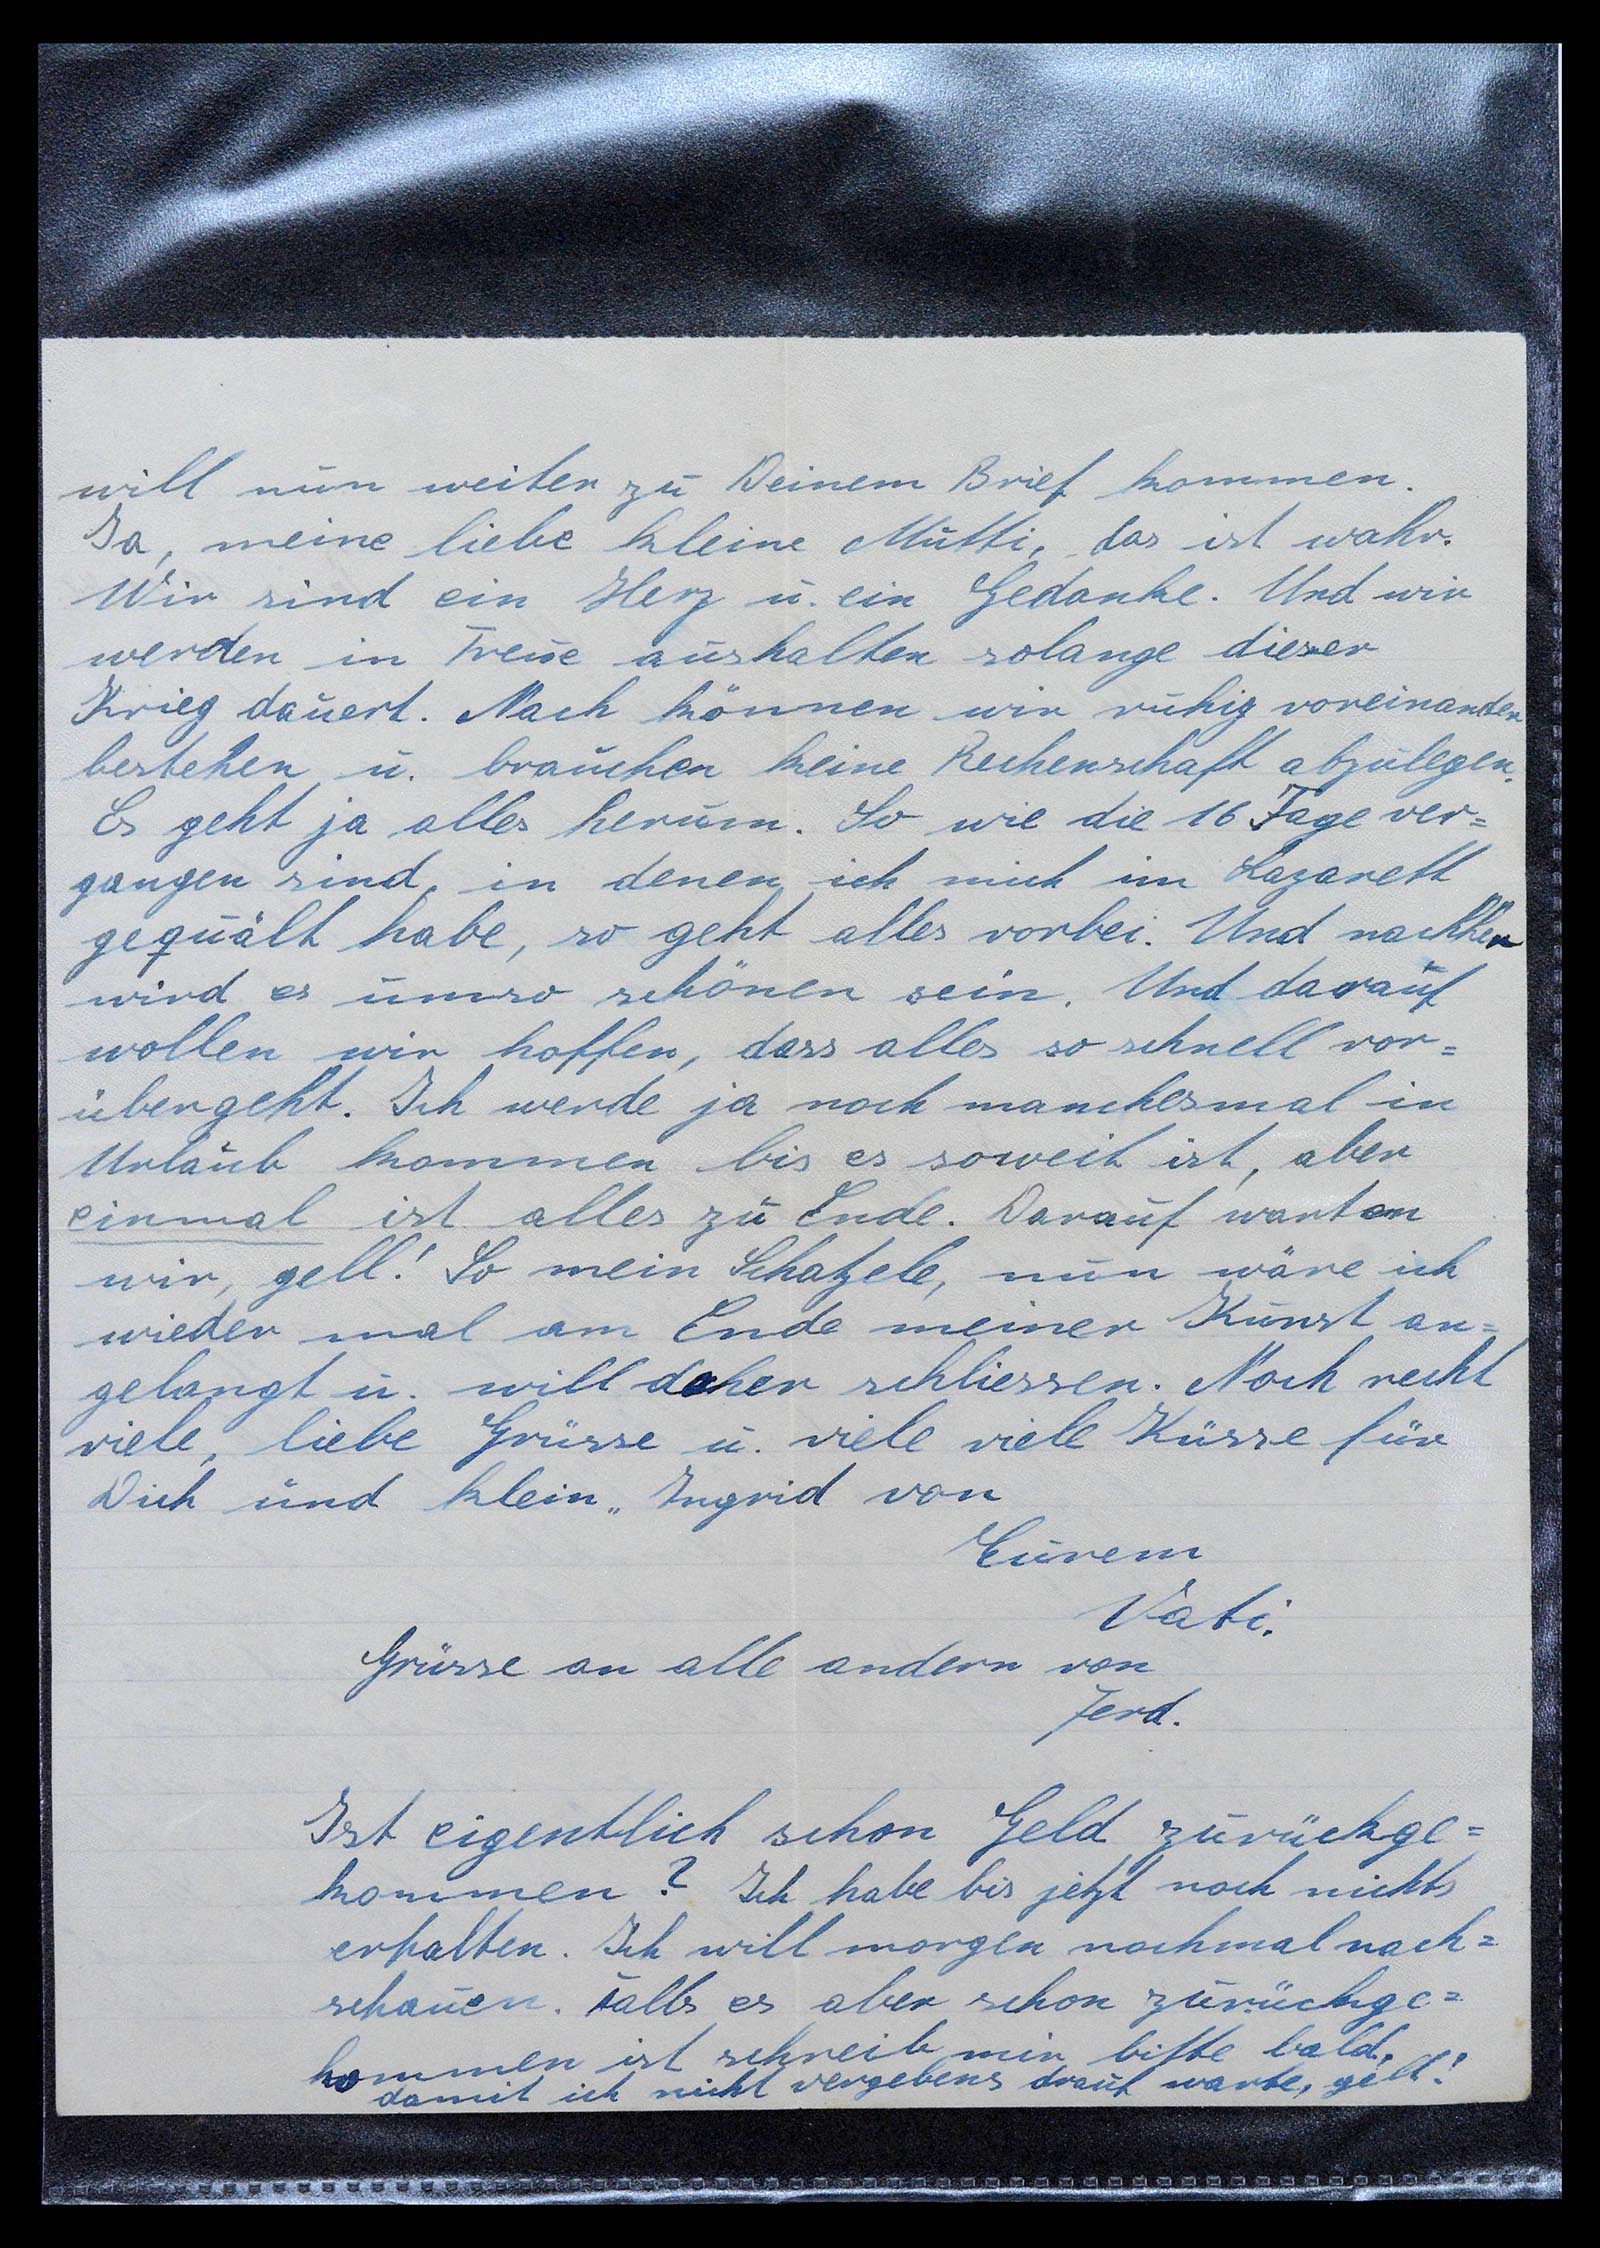 will nun weiter zu Deinem Brief kommen.
Ja, meine liebe kleine Mutti, das ist wahr.
Wir sind ein Herz u. ein Gedanke. Und wir
werden in Treue aushalten solange dieser
Krieg dauert. Nach können wir ruhig voreinander
bestehen u. brauchen keine Rechenschaft abzulegen.
Es geht ja alles herum. So wie die 16 Tage ver=
gangen sind, in denen ich mich im Lazarett
gequält habe, so geht alles vorbei. Und nachher
wird es umso schöner sein. Und darauf
wollen wir hoffen, dass alles so schnell vor=
übergeht. Ich werde ja noch manchesmal in
Urlaub kommen bis es soweit ist, aber
einmal ist alles zu Ende. Darauf warten
wir, gell! So mein Schatzele, nun wäre ich
wieder mal am Ende meiner Kunst an=
gelangt u. will daher schliessen. Noch recht
viele, liebe Grüsse u. viele viele Küsse für
Dich und klein" Ingrid von
Eurem
Vati.
Grüsse an alle andern von
Ferd.
Ist eigentlich schon Geld zurückge=
kommen? Ich habe bis jetzt noch nichts
erhalten. Ich will morgen nochmal nach=
schauen. Falls es aber schon zurückge=
kommen ist schreib mir bitte bald,
damit ich nicht vergebens drauf warte, gell!